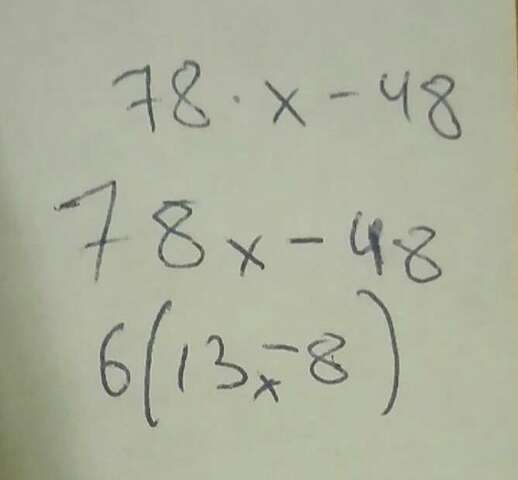 78 · x - 48
78x - 48
6(13x - 8)